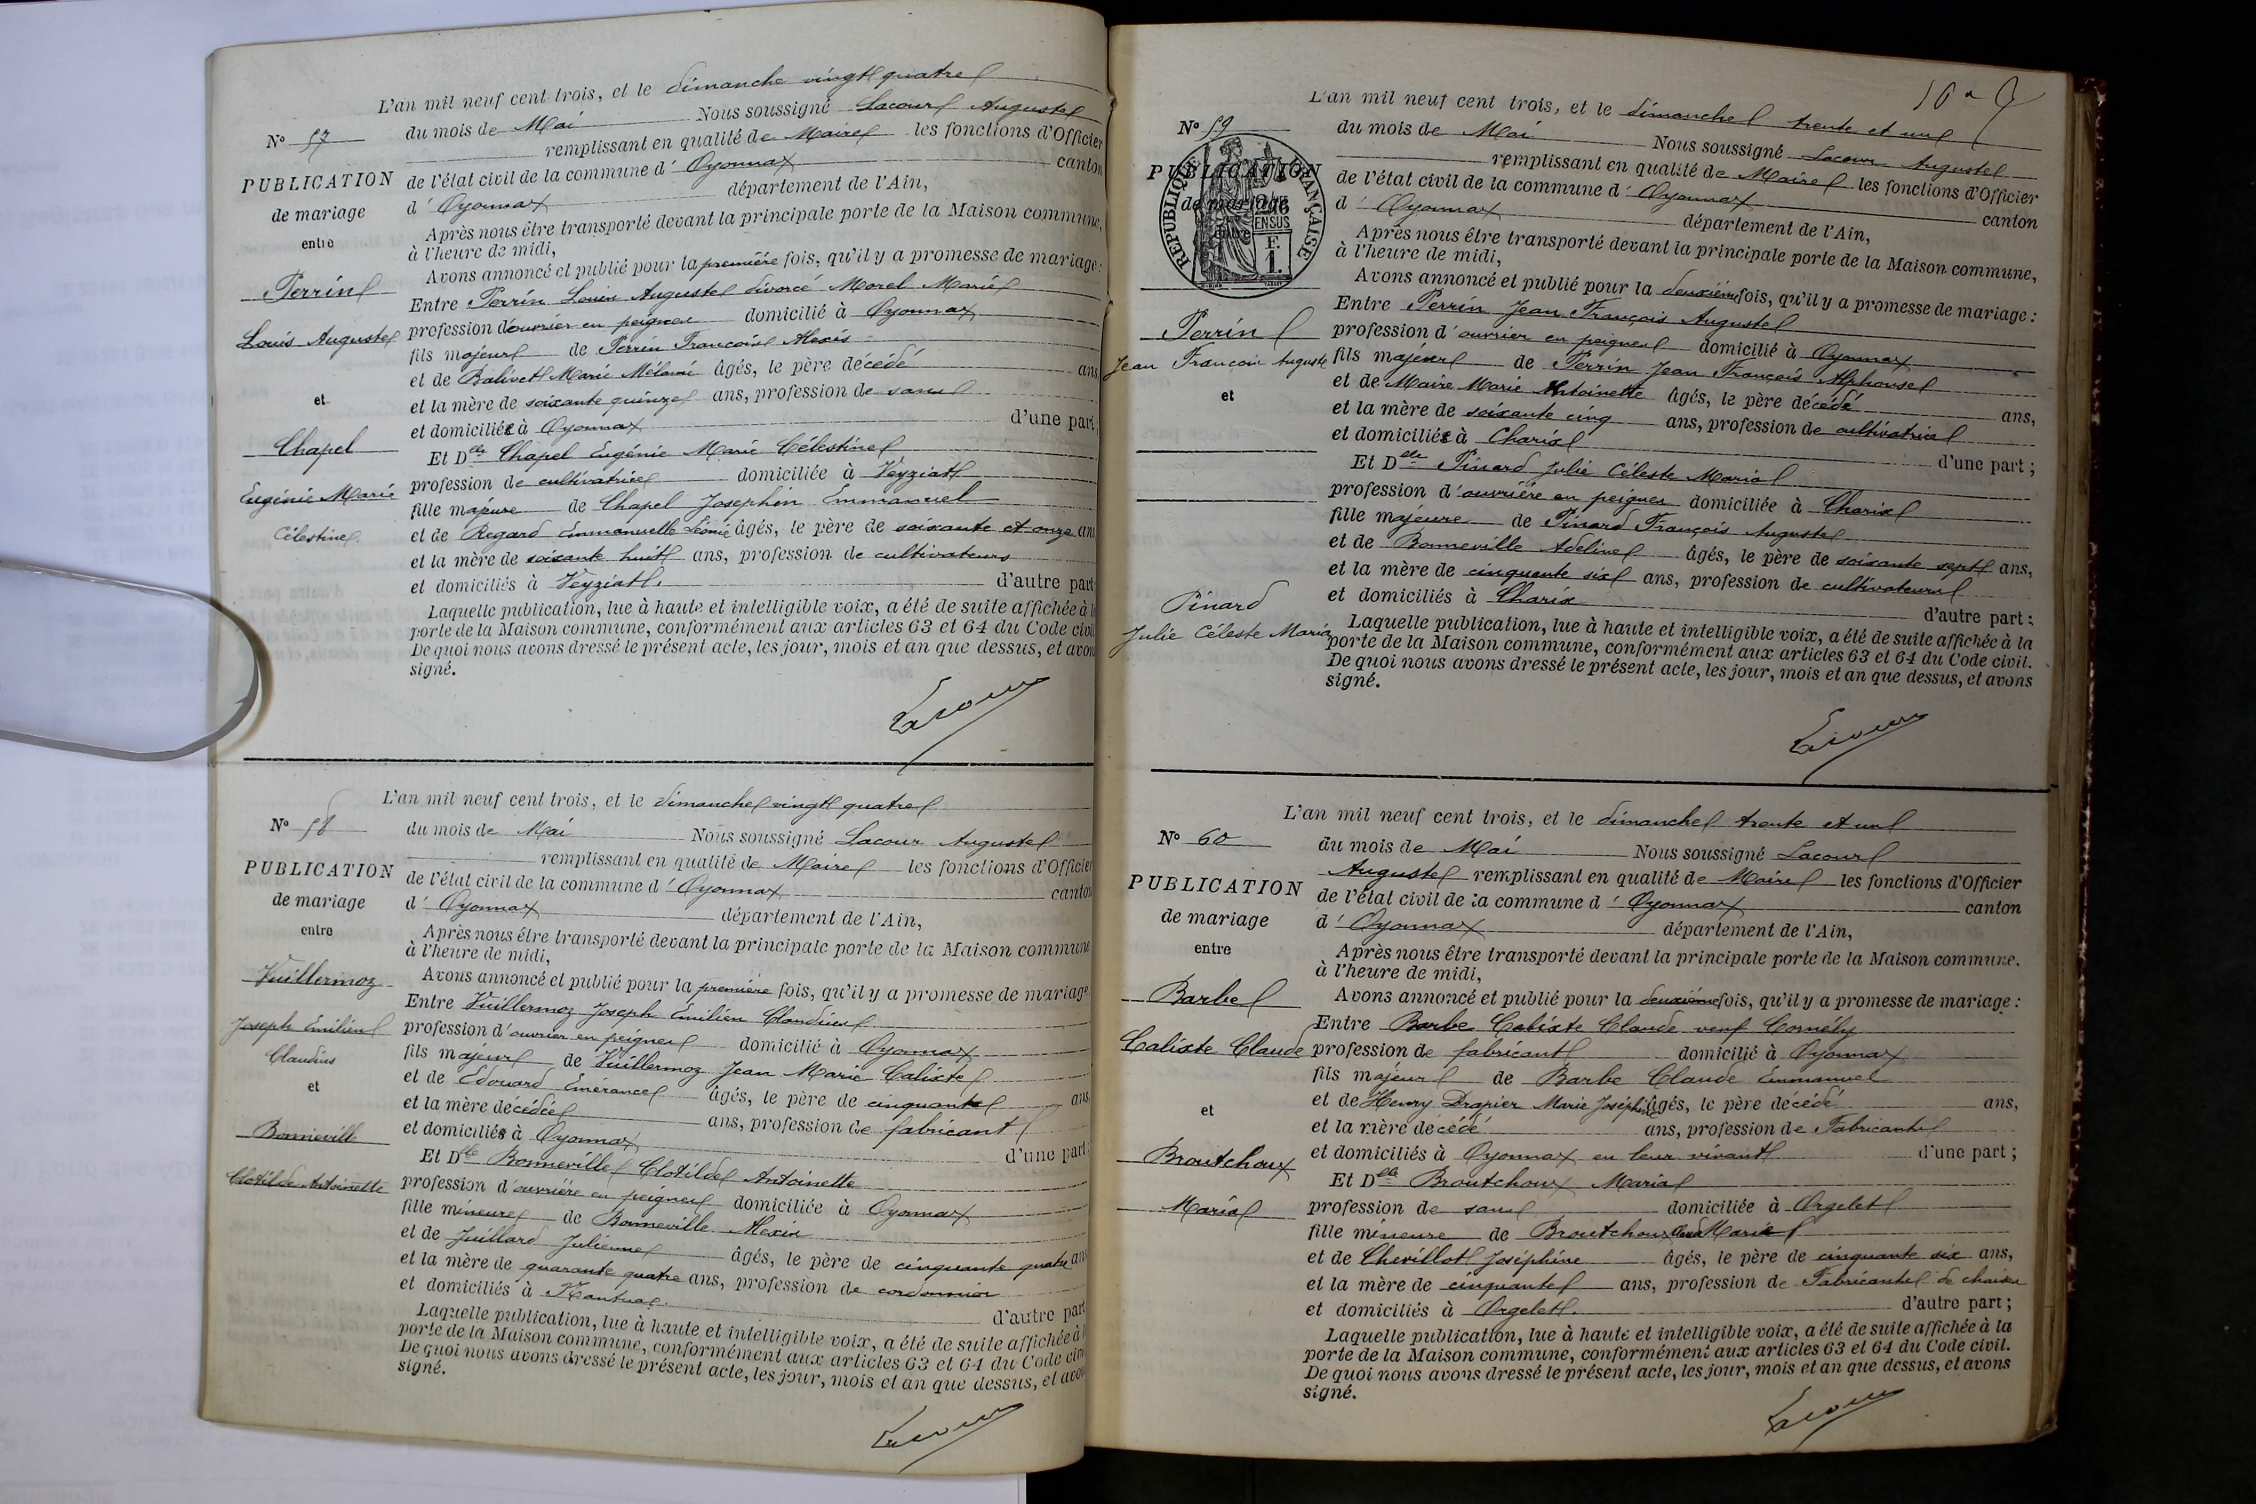 L'an mil neuf cent trois, et le dimanche vingt quatre
Nº 57
du mois de Mai Nous soussigné Lacour Auguste
remplissant en qualité de Maire les fonctions d'Officier
PUBLICATION
de l'état civil de la commune d' Oyonnax canton
de mariage
d' Oyonnax département de l'Ain,
entre
Après nous être transporté devant la principale porte de la Maison commune,
à l'heure de midi,
Avons annoncé et publié pour la première fois, qu'il y a promesse de mariage:
Perrin
Entre Perrin Louis Auguste divorcé Morel Marie
Louis Auguste
profession d'ouvrier en peignes domicilié à Oyonnax
fils majeur de Perrin François Alexis
et de Balivet Marie Mélanie âgés, le père de décédé ans
et
et la mère de soixante quinze ans, profession de sans
et domiciliée à Oyonnax d'une part;
Chapel
Et Dlle Chapel Eugénie Marie Célestine
profession de cultivatrice domiciliée à Veyziat
Eugénie Marie
fille majeure de Chapel Josephin Emmanuel
Célestine
et de Regard Emmanuelle Léonie âgés, le père de soixante et onze ans
et la mère de soixante huit ans, profession de cultivateurs
et domiciliés à Veyziat. d'autre part
Laquelle publication, lue à haute et intelligible voix, a été de suite affichée à la
porte de la Maison commune, conformément aux articles 63 et 64 du Code civil
De quoi nous avons dressé le présent acte, les jour, mois et an que dessus, et avons
signé.
Lacour
L'an mil neuf cent trois, et le dimanche vingt quatre
Nº 58
du mois de Mai Nous soussigné Lacour Auguste
remplissant en qualité de Maire les fonctions d'Officier
PUBLICATION
de l'état civil de la commune d' Oyonnax canton
de mariage
d' Oyonnax département de l'Ain,
entre
Après nous être transporté devant la principale porte de la Maison commune
à l'heure de midi,
Vuillermoz
Avons annoncé et publié pour la première fois, qu'il y a promesse de mariage
Entre Vuillermoz Joseph Emilien Claudius
Joseph Emilien
profession d'ouvrier en peignes domicilié à Oyonnax
Claudius
fils majeur de Vuillermoz Jean Marie Calixte
et
et de Edouard Emérance âgés, le père de cinquante ans
et la mère décédée ans, profession de fabricant
Bonneville
et domiciliés à Oyonnax d'une part;
Et Dlle Bonneville Clotilde Antoinette
Clotilde Antoinette
profession d'ouvrière en peignes domiciliée à Oyonnax
fille mineure de Bonneville Alexis
et de Juillard Julienne âgés, le père de cinquante quatre ans
et la mère de quarante quatre ans, profession de cordonnier
et domiciliés à Nantua. d'autre part
Laquelle publication, lue à haute et intelligible voix, a été de suite affichée à la
porte de la Maison commune, conformément aux articles 63 et 64 du Code civil
De quoi nous avons dressé le présent acte, les jour, mois et an que dessus, et avons
signé.
Lacour
L'an mil neuf cent trois, et le dimanche trente et un
Nº 59
du mois de Mai Nous soussigné Lacour Auguste
remplissant en qualité de Maire les fonctions d'Officier
PUBLICATION
RÉPUBLIQUE FRANÇAISE
de l'état civil de la commune d' Oyonnax canton
de mariage
EN SUS
F.
1.
d' Oyonnax département de l'Ain,
entre
Après nous être transporté devant la principale porte de la Maison commune,
à l'heure de midi,
Avons annoncé et publié pour la deuxième fois, qu'il y a promesse de mariage:
Perrin
Entre Perrin Jean François Auguste
profession d'ouvrier en peignes domicilié à Oyonnax
Jean François Auguste
fils majeur de Perrin Jean François Alphonse
et
et de Maire Marie Antoinette âgés, le père décédé ans,
et la mère de soixante cinq ans, profession de cultivatrice
et domiciliée à Charix d'une part;
Et Dlle Pinard Julie Céleste Maria
profession d'ouvrière en peignes domiciliée à Charix
fille majeure de Pinard François Auguste
et de Bonneville Adeline âgés, le père de soixante sept ans,
et la mère de cinquante six ans, profession de cultivateurs
et domiciliés à Charix d'autre part:
Pinard
Julie Céleste Maria
Laquelle publication, lue à haute et intelligible voix, a été de suite affichée à la
porte de la Maison commune, conformément aux articles 63 et 64 du Code civil.
De quoi nous avons dressé le présent acte, les jour, mois et an que dessus, et avons
signé.
Lacour
L'an mil neuf cent trois, et le dimanche trente et un
Nº 60
du mois de Mai Nous soussigné Lacour
Auguste remplissant en qualité de Maire les fonctions d'Officier
PUBLICATION
de l'état civil de la commune d' Oyonnax canton
de mariage
d' Oyonnax département de l'Ain,
entre
Après nous être transporté devant la principale porte de la Maison commune.
à l'heure de midi,
Barbe
Avons annoncé et publié pour la deuxième fois, qu'il y a promesse de mariage:
Entre Barbe Calixte Claude veuf Cornély
Calixte Claude
profession de fabricant domicilié à Oyonnax
fils majeur de Barbe Claude Emmanuel
et
et de Henry Drapier Marie Joséphine âgés, le père décédé ans,
et la mère décédé ans, profession de Fabricants
Broutchoux
et domiciliés à Oyonnax en leur vivant d'une part;
Et Dlle Broutchoux Maria
Maria
profession de sans domiciliée à Orgelet
fille mineure de Broutchoux Marie
et de Chevillot Joséphine âgés, le père de cinquante six ans,
et la mère de cinquante ans, profession de Fabricants de chaises
et domiciliés à Orgelet. d'autre part;
Laquelle publication, lue à haute et intelligible voix, a été de suite affichée à la
porte de la Maison commune, conformément aux articles 63 et 64 du Code civil.
De quoi nous avons dressé le présent acte, les jour, mois et an que dessus, et avons
signé.
Lacour